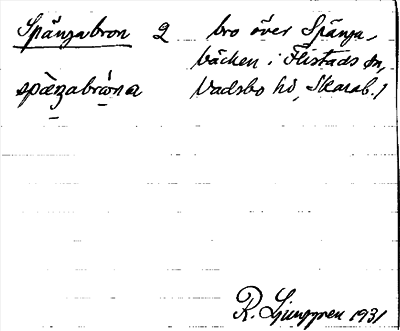 Spänjabron 2 bro över Spänja-
bäcken i Flistads sn,
Vadsbo hd, Skarab. l
R. Ljunggren 1931